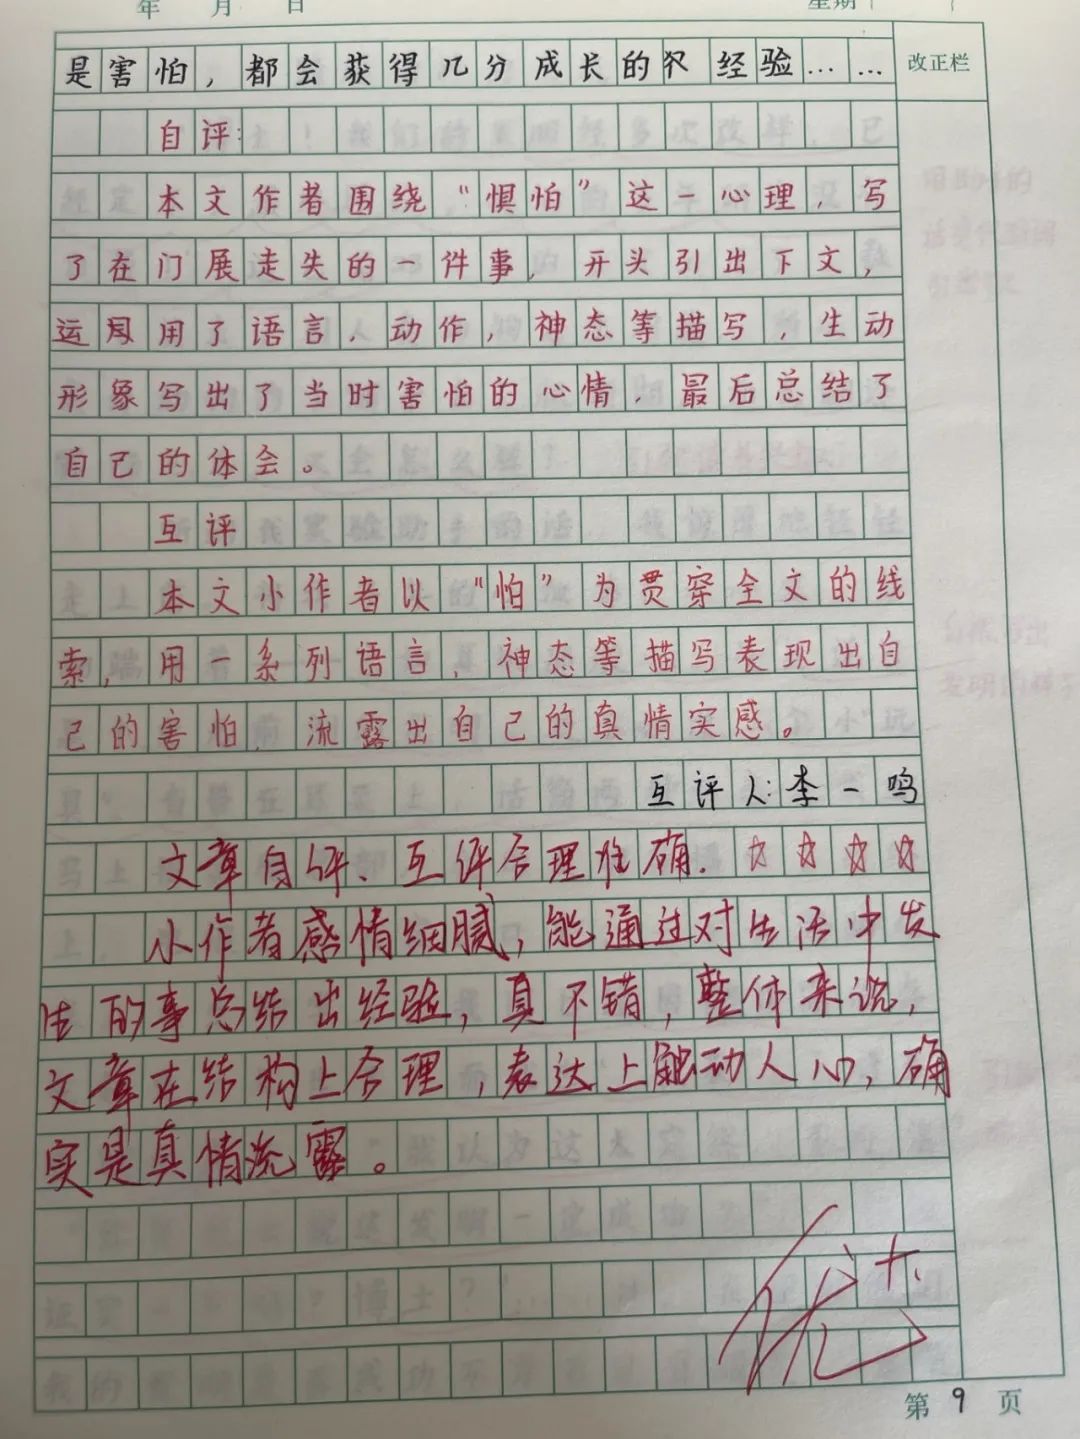 年 月 日 星期
改正栏
是害怕，都会获得几分成长的 经验……
自评：
本文作者围绕“惧怕”这一心理，写
了在门展走失的一件事，开头引出下文，
运用了语言、动作，神态等描写，生动
形象写出了当时害怕的心情，最后总结了
自己的体会。
互评
本文小作者以“怕”为贯穿全文的线
索，用一系列语言，神态等描写表现出自
己的害怕，流露出自己的真情实感。
互评人：李一鸣
文章自评、互评合理准确．☆☆☆☆
小作者感情细腻，能通过对生活中发
生的事总结出经验，真不错，整体来说，
文章在结构上合理，表达上触动人心，确
实是真情流露。
优+
第 9 页